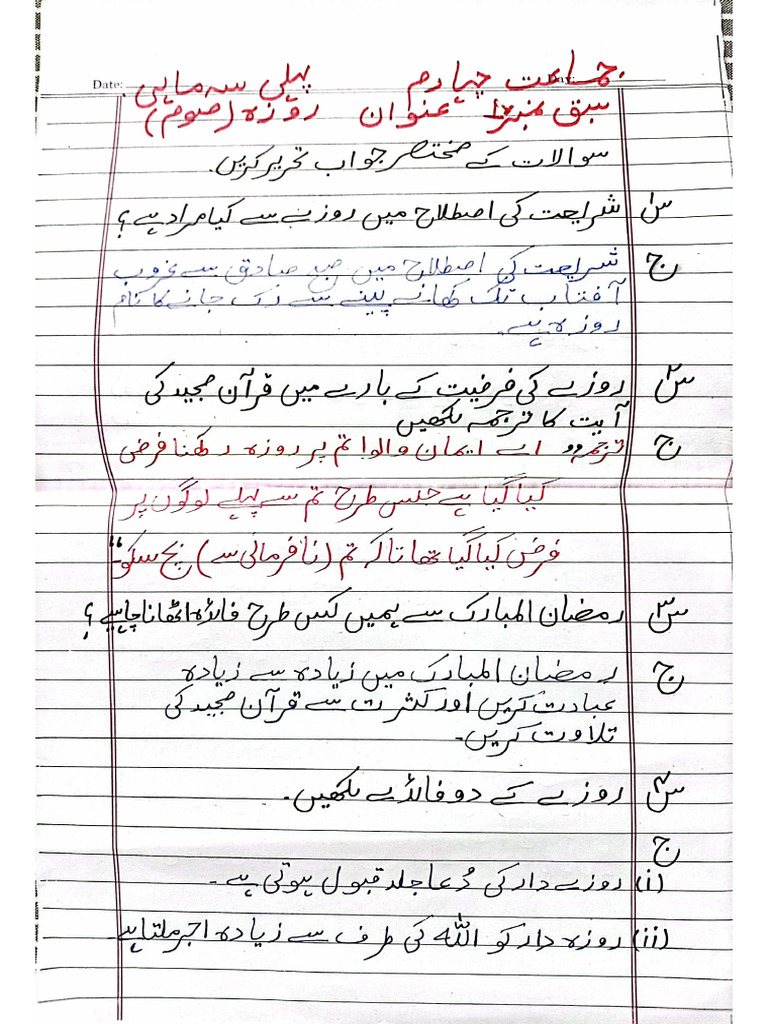 Date: Day:
جماعت چہارم پہلی سہ ماہی
سبق نمبر عنوان روزہ (صوم)
سوالات کے مختصر جواب تحریر کریں۔
س۱ شریعت کی اصطلاح میں روزے سے کیا مراد ہے؟
ج شریعت کی اصطلاح میں صبح صادق سے غروب
آفتاب تک کھانے پینے سے رک جانے کا نام
روزہ ہے۔
س۲ روزے کی فرضیت کے بارے میں قرآن مجید کی
آیت کا ترجمہ لکھیں
ج ترجمہ "اے ایمان والو! تم پر روزہ رکھنا فرض
کیا گیا ہے جس طرح تم سے پہلے لوگوں پر
فرض کیا گیا تھا تاکہ تم (نافرمانی سے) بچ سکو۔"
س۳ رمضان المبارک سے ہمیں کس طرح فائدہ اٹھانا چاہیے؟
ج رمضان المبارک میں زیادہ سے زیادہ
عبادت کریں اور کثرت سے قرآن مجید کی
تلاوت کریں۔
س۴ روزے کے دو فائدے لکھیں۔
ج
(i) روزے دار کی دُعا جلد قبول ہوتی ہے۔
(ii) روزہ دار کو اللہ کی طرف سے زیادہ اجر ملتا ہے۔